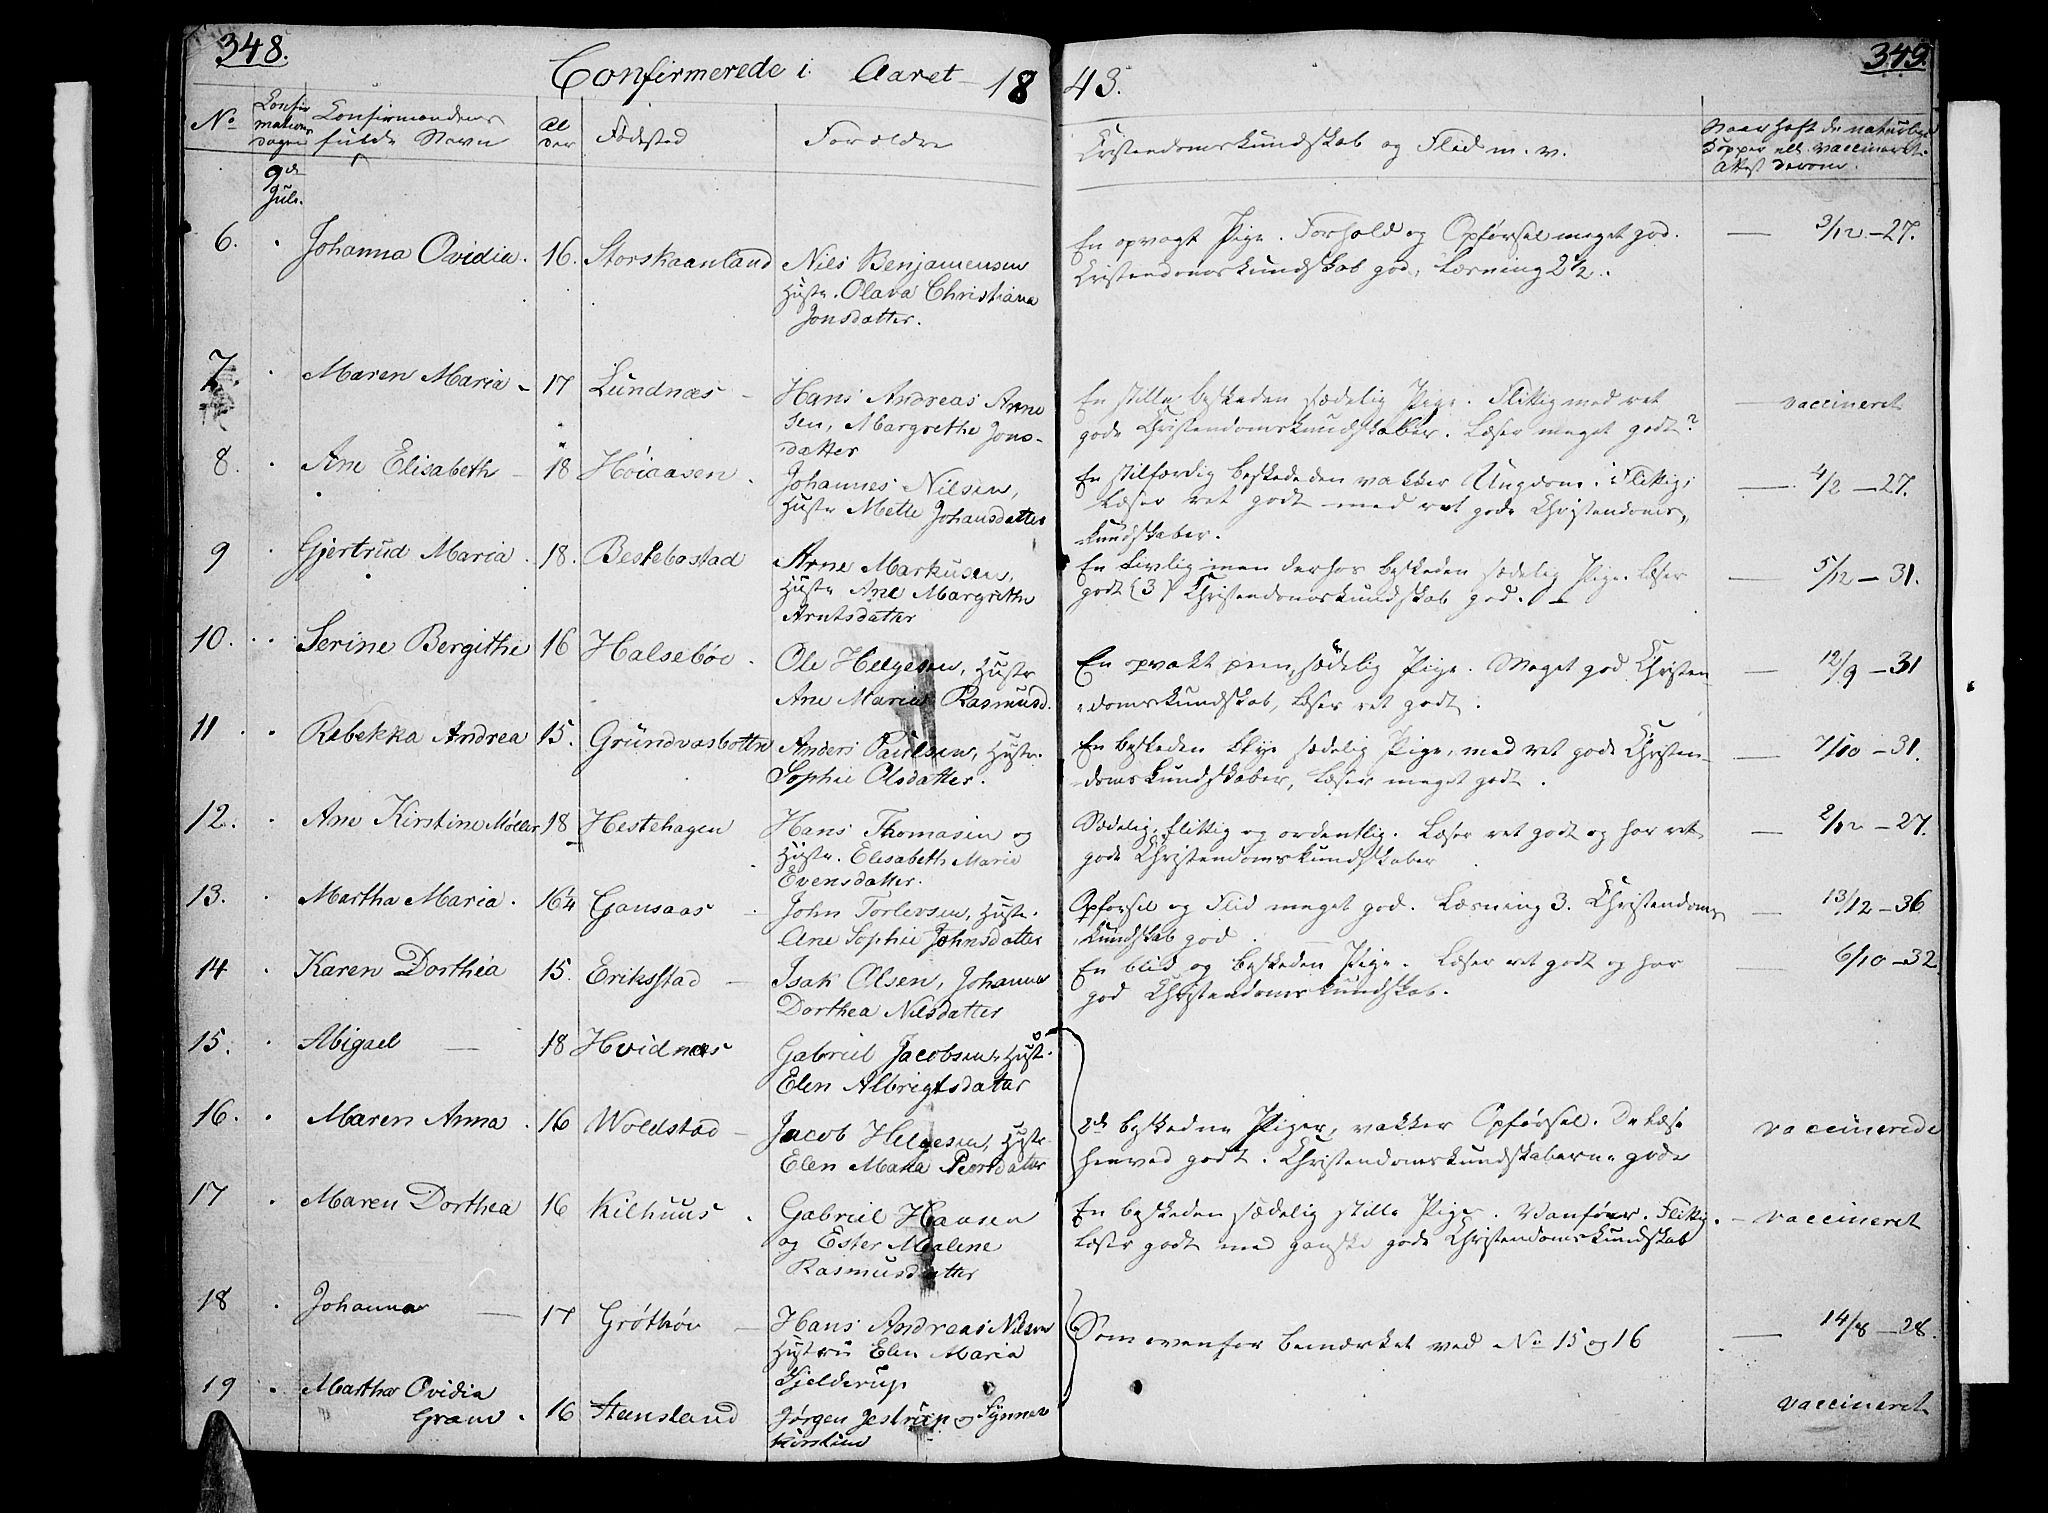 348.
349.
Confirmerede i Aaret 1843.
No
Confirmations dagen
Confirmandens fulde Navn
Alder
Fødested
Forældre
Christendomskundskab og Flid m. v.
Naar haft de naturlige Kopper ell. vaccineret. Attest derom.
9de Juli.
6. Johanna Ovidia. 16. Storskaanland Nils Benjamensen
Hustr. Olava Christiana
Jonsdatter.
En opvagt Pige. Forhold og Opførsel meget god.
Kristendomskundskab god, Læsning 2½.
3/12 - 27.
7. Maren Maria 17 Lundnæs Hans Andreas Arne
sen, Margrethe Jons-
datter
En stille beskeden sædelig Pige. Flittig med ret
gode Christendomskundskaber. Læser meget godt.
vaccineret
8. Ane Elisabeth 18 Høiaasen Johannes Nilsen,
Hustr Mette Johansdatter
En stilfærdig beskeden vakker Ungdom. Flittig,
Læser ret godt med ret gode Christendoms-
kundskaber.
4/2 - 27.
9 Gjertrud Maria 18. Bestebostad Arne Markusen,
Hustr Ane Margrethe
Arntsdatter
En livlig men derhos beskeden sædelig Pige. Læser
godt (3) Christendomskundskab god.
5/12 - 31.
10. Serine Bergithe 16 Halsebøe Ole Helgesen, Hustr
Ane Maria Rasmusd.
En opvakt pen, sædelig Pige. Meget god Christen-
domskundskab, læser ret godt.
12/9 - 31
11 Rebekka Andrea 15. Grundvasbotten Anders Paulsen, Hustr.
Sophie Olsdatter.
En beskeden sædelig Pige, med ret gode Christen-
domskundskaber, læser meget godt.
7/10 - 31.
12. Ane Kirstine Møller 18 Hestehagen Hans Thomasen og
Hustr. Elisabeth Marie
Evensdatter.
Sædelig, flittig og ordentlig. Læser ret godt og har ret
gode Christendomskundskaber
2/12 - 27.
13. Martha Maria. 16¼ Gansaas John Torlevsen, Hustr.
Ane Sophie Johnsdatter
Opførsel og Flid meget god. Læsning 3. Christendoms
kundskab god
13/12 - 36
14 Karen Dorthea 15. Eriksstad Isak Olsen, Johanna
Dorthea Nilsdatter
En blid og beskeden Pige. Læser ret godt og har
god Christendomskundskab.
6/10 - 32
15. Abigael 18 Hvidnæs Gabriel Jacobsen, Hust.
Elen Albrigtsdatter
16. Maren Anna 16 Woldstad Jacob Helgesen, Hustr
Elen Maria Peersdatter
2de beskedne Piger, vakker Opførsel. De læse
henved godt. Christendomskundskaberne gode
vaccinerede
17 Maren Dorthea 16 Kilhuus Gabriel Hansen
og Ester Malene
Rasmusdatter
En beskeden sædelig stille Pige. Vanfør. Flittig.
Læser godt med ganske gode Christendomskundskab
vaccineret
18 Johanna 17 Grøthøv Hans Andreas Nilsen
Hustru Elen Maria
Kjelderup
Som ovenfor bemærket ved No 15 og 16
14/8 - 28.
19 Martha Ovidia
Gram 16 Steensland Jørgen Jestrup og Synnev
Kirstine
vaccineret